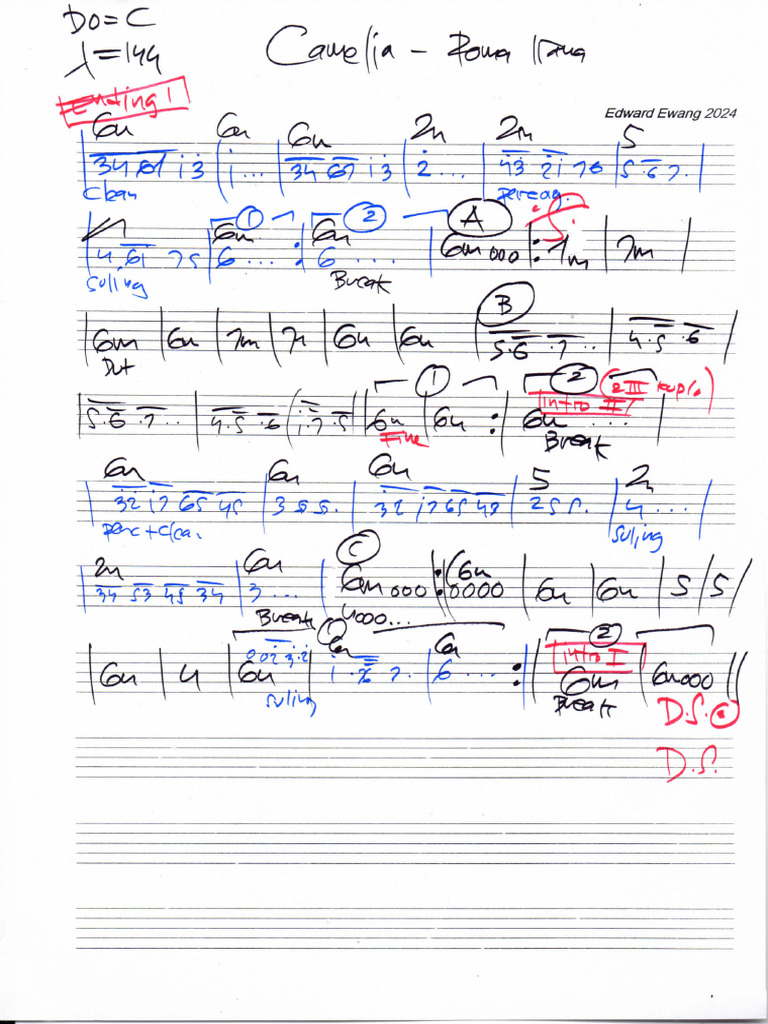 Do = C
♩=144
Camelia - Roma Irama
Ending 1
Edward Ewang 2024
6m 6m 6m 2m 2m 5
34 67 i 3 | i... | 34 67 i 3 | 2... | 43 2i 7 6 | 5 .6 7.
Clean
1 2 A
6m 6m 6m 000 : 7m | 7m
4 61 75 | 6 ... : 6 ....
Suling Break
B
6m | 6m | 7m | 7m | 6m | 6m | 5.6 .7 .. | 4.5 .6
1 2
5.6 .7 .. | 4.5 .6 | i.7.5 | 6m | 6m : 6m ...
Intro II
Fine Break
6m 6m 6m 5 2m
32 i7 65 45 | 3 5 5. | 32 i7 65 47 | 2 5 5. | 4 ...
perc + Clea. Suling
2m 6m C
34 53 45 34 | 3 ... | 6m 000 : 6m 0000 | 6m | 6m | 5 | 5
Break
1 2
6m | 4 | 6m | 6m | 6m
002 3.2 | 7. | 6 ... :
Intro I
6m | 6m000
suling Break
D.S.
D.S.